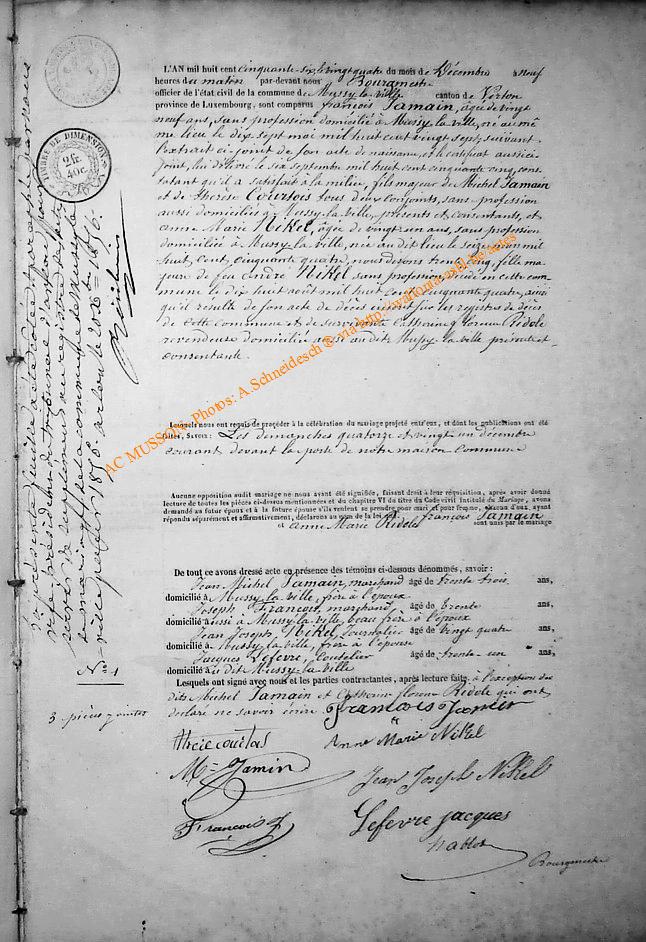 L'AN mil huit cent cinquante-six le vingt quatre du mois de Décembre à neuf
heures du matin par-devant nous Bourgmestre
officier de l'état civil de la commune de Mussy-la-ville canton de Virton
province de Luxembourg, sont comparus François Jamain, âgée de vingt
neuf ans, sans profession domicilié à Mussy la ville, né au mê
me lieu le dix sept mai mil huit cent vingt sept, suivant
l'extrait ci-joint de son acte de naissance, et le certificat aussi ci
joint, lui délivré le six septembre mil huit cent cinquante cinq, cons
tatant qu'il a satisfait à la milice, fils majeur de Michel Jamain
et de Thérèse Courtois tous deux conjoints, sans profession
aussi domiciliés à Mussy-la-ville, présents et consentants, et
anne Marie Nikel, âgée de vingt un ans, sans profession
domiciliée à Mussy-la-ville, née au dit lieu le seize mil
huit cent trente cinq, fille ma
jeure de feu andré Nikel sans profession décédé en cette com
mune le dix huit août mil huit cent cinquante quatre, ainsi
qu'il résulte de son acte de décès inscrit sur les registres de décès
de cette commune et de survivante Catherine florence Ridole
revendeuse domiciliée aussi au dit Mussy-la-ville présente et
consentante.
Lesquels nous ont requis de procéder à la célébration du mariage projeté entr'eux, et dont les publications ont été
faites, SAVOIR : Les dimanches quatorze et vingt un décembre
courant devant la porte de notre maison Commune
Aucune opposition audit mariage ne nous ayant été signifiée, faisant droit à leur réquisition, après avoir donné
lecture de toutes les pièces ci-dessus mentionnées et du chapitre VI du titre du Code civil intitulé du Mariage, avons
demandé au futur époux et à la future épouse s'ils veulent se prendre pour mari et pour femme, chacun d'eux ayant
répondu séparément et affirmativement, déclarons au nom de la loi que françois Jamain
& anne Marie Ridole sont unis par le mariage
De tout ce avons dressé acte en présence des témoins ci-dessous dénommés, savoir :
Jean Michel Jamain, marchand âgé de trente trois ans,
domicilié à Mussy-la-ville, frère à l'époux
Joseph François, marchand, âgé de trente ans,
domicilié aussi à Mussy-la-ville, beau frère à l'époux
Jean Joseph Nikel, Journalier âgé de vingt quatre ans,
domicilié à Mussy-la-ville, frère à l'épouse
Jacques Lefevre, Coutelier âgé de trente un ans,
domicilié au dit Mussy-la-ville
Lesquels ont signé avec nous et les parties contractantes, après lecture faite, à l'exception des
dits Michel Jamain et Catherine florence Ridole qui ont
déclaré ne savoir écrire. François Jamin
Anne Marie Nikel
M Jamin
Jean Joseph Nikel
François J
Lefevre Jacques
Bourgmestre
TIMBRE DE DIMENSION
2 fr
40 c
La présente feuille a été cotée et paraphée par nous
No 1
3 pièces jointes
AC MUSSON - Photos: A. Schneidesch @ via http://wallonia-asbl-be/actes